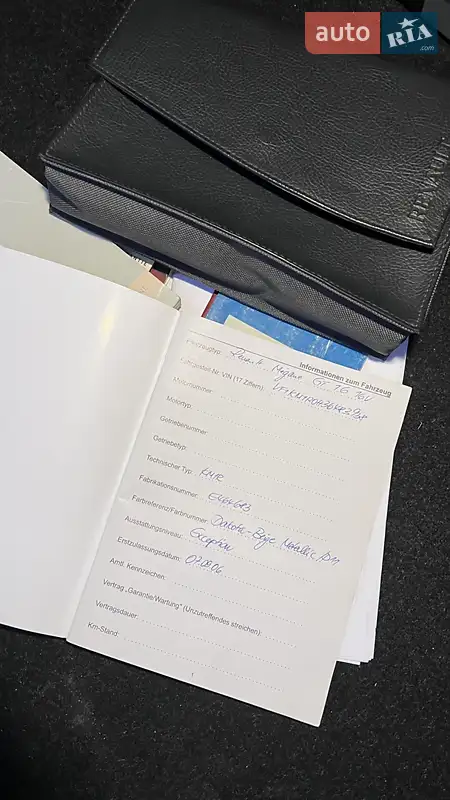 auto RIA .com
RENAULT
Informationen zum Fahrzeug
Fahrzeugtyp: Renault Megane GT 1.6 16V
Fahrgestell-Nr. VIN (17 Ziffern):
Motornummer:
Motortyp:
Getriebenummer:
Getriebetyp:
Technischer Typ: KM1R
Fabrikationsnummer:
Farbreferenz/Farbnummer: Dakota-Beige Metallic
Ausstattungsniveau: Exception
Erstzulassungsdatum: 07.08.06
Amtl. Kennzeichen:
Vertrag „Garantie/Wartung" (Unzutreffendes streichen):
Vertragsdauer:
Km-Stand:
1